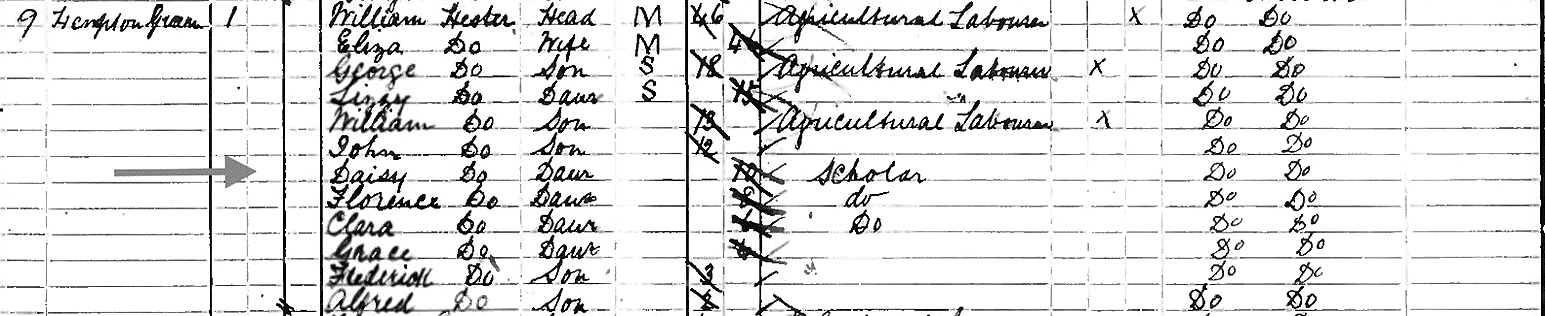 9 Hempton Green 1 William Hester Head M 46 Agricultural Labourer X Do Do
Eliza Do Wife M Do Do
George Do Son S 18 Agricultural Labourer X Do Do
Lizzy Do Daur S 15 Do Do
William Do Son 13 Agricultural Labourer X Do Do
John Do Son 12 Do Do
Daisy Do Daur 10 Scholar Do Do
Florence Do Daur 8 do Do Do
Clara Do Daur Do Do Do
Grace Do Daur Do Do
Frederick Do Son 3 Do Do
Alfred Do Son 2 Do Do